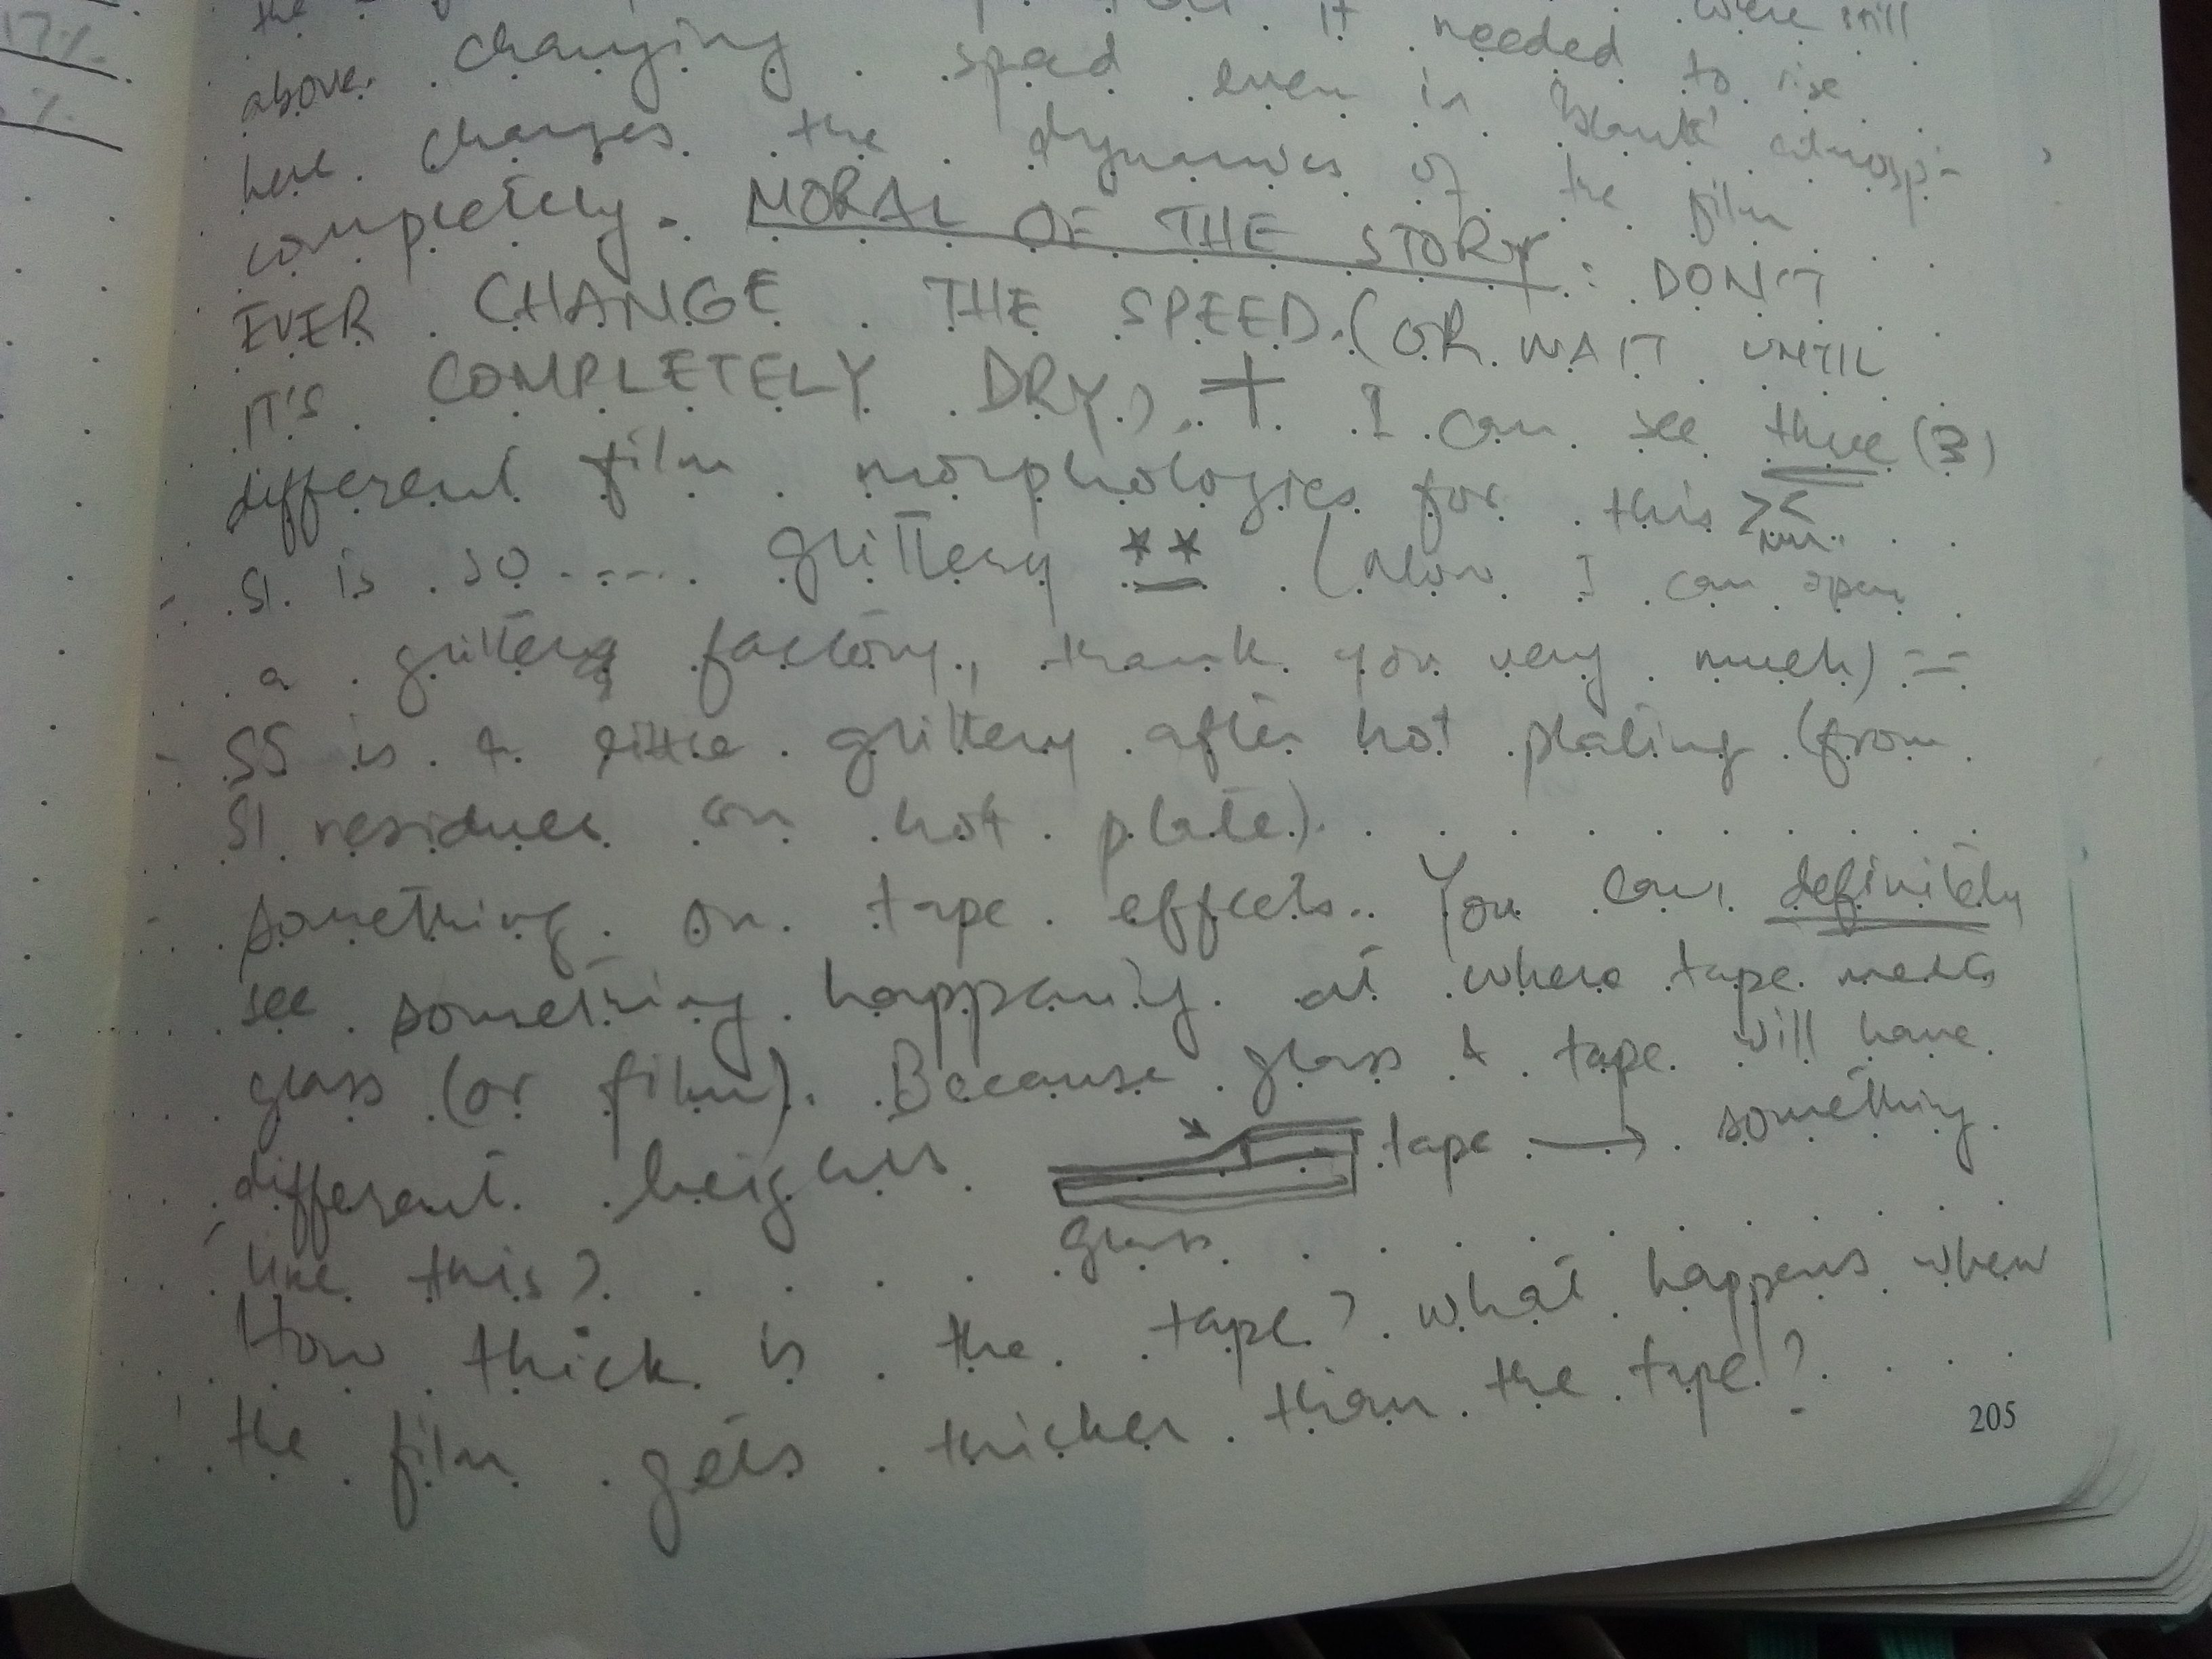 17%
%
the it needed were still
above. Changing speed even in to rise
here changes the dynamics of 'blank' atmosp-
completely. MORAL OF THE STORY: DON'T the film
EVER CHANGE THE SPEED. (OR WAIT UNTIL
IT'S COMPLETELY DRY). + I can see three (3)
different film morphologies for this ><
- S1 is so ..... glittery ** (Now I can open
a glittery factory, thank you very much) --
- SS is a little glittery after hot plating (from
S1 residues on hot plate).
- something on tape effects. You can definitely
see something happening at where tape meets
glass (or film). Because glass & tape will have
different heights tape → something
glass
like this?
How thick is the tape? what happens when
the film gets thicker than the tape?
205